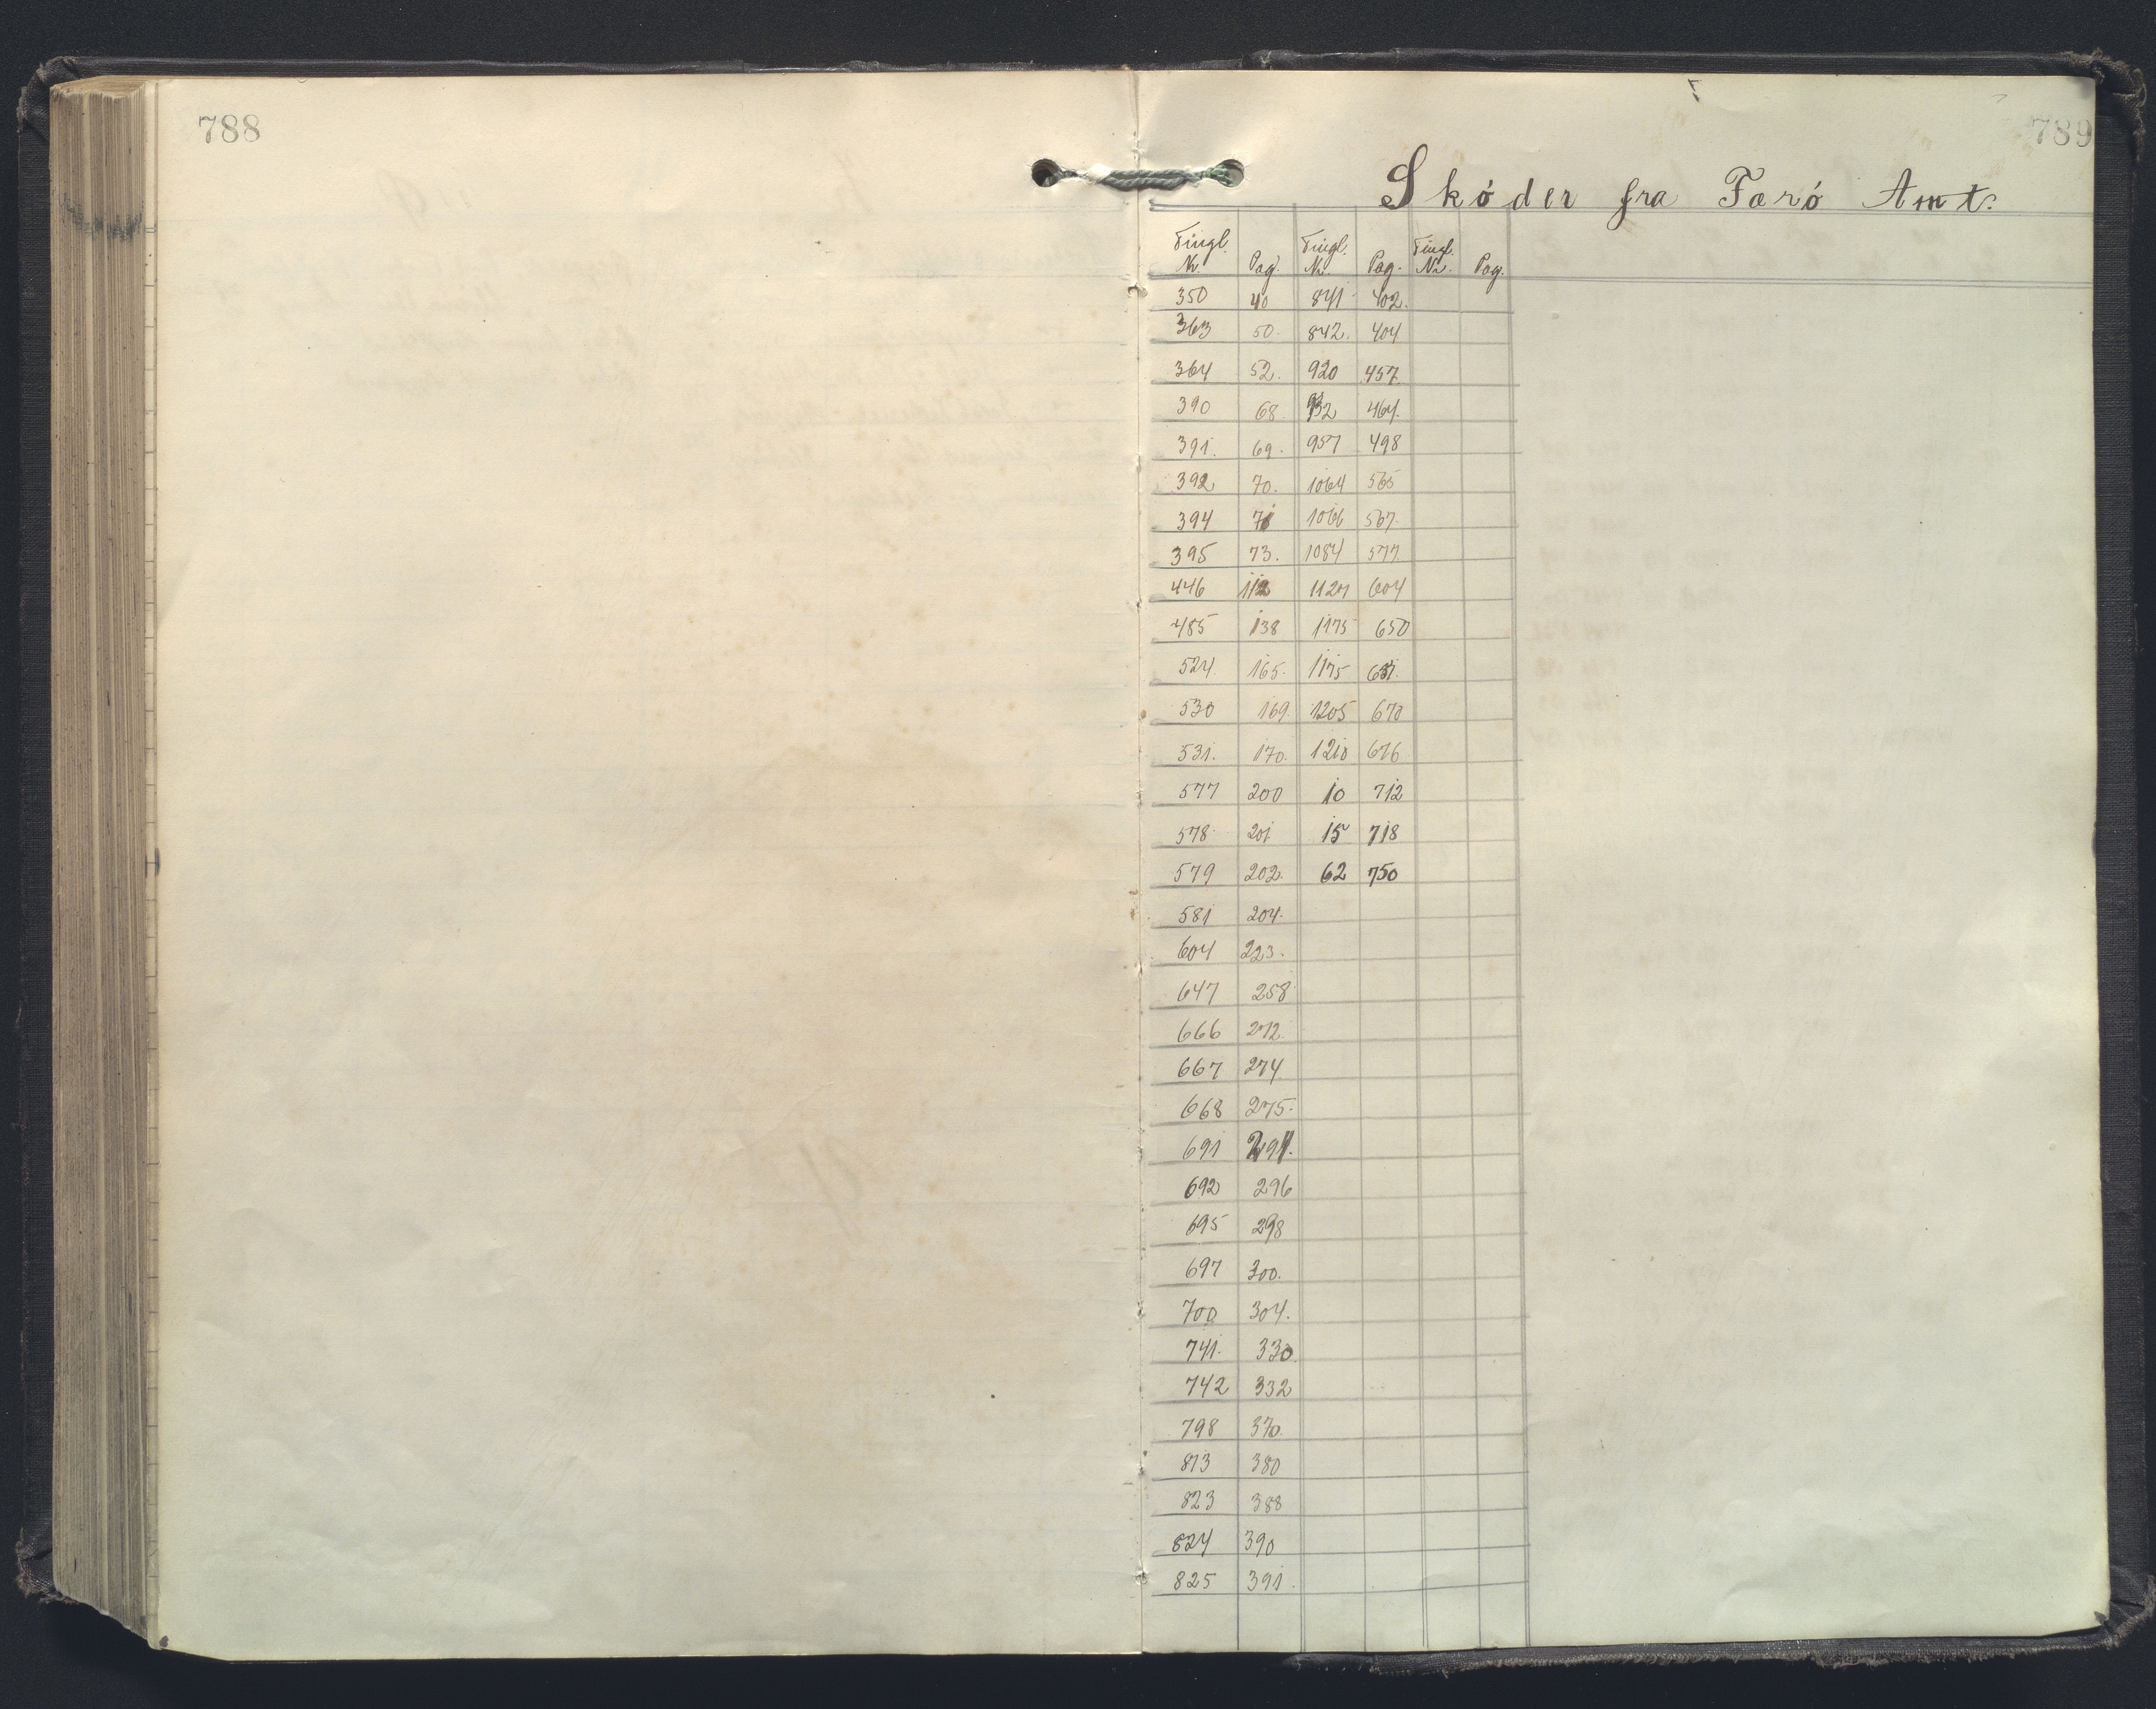 788
789
Skóder fra Færó Amt.
Tingl. Nr. Pag. Tingl. Nr. Pag. Tingl. Nr. Pag.
350 40 841 402.
363 50. 842. 404
364 52. 920 457.
390 68. 932 464.
391. 69. 957 498
392 70. 1064 565
394 71 1066 567.
395 73. 1084 577.
446 112 1127 604
485 138 1175 650
524. 165. 1175 651.
530 169. 1205 670
531. 170. 1210 676
577 200 10 712
578 201 15 718
579 202. 62 750
581 204.
604 223.
647 258
666 272.
667 274
668 275.
691 294.
692 296
695 298
697 300.
700 304.
741. 330
742 332
798 370
813 380
823 388
824 390
825 391.